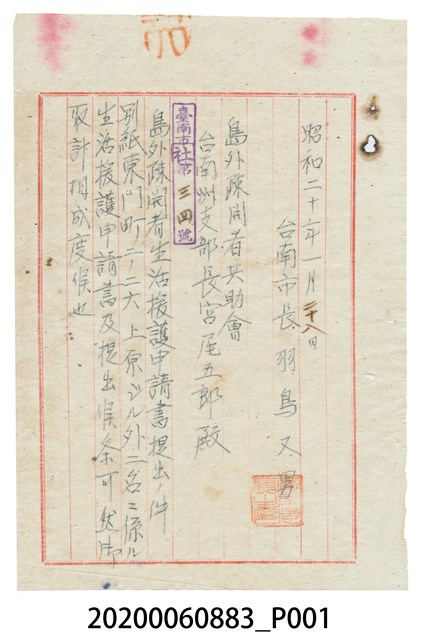 昭和二十年一月二十八日
台南市長 羽鳥又男
島外疎開者共助會
台南州支部長宮尾五郎殿
臺南市社第三四號
島外疎開者生活援護申請書提出ノ件
別紙東門町二ノ二六上原ツル外二名ニ係ル
生活援護申請書及提出候条可然御
取計相成度候也
20200060883_P001